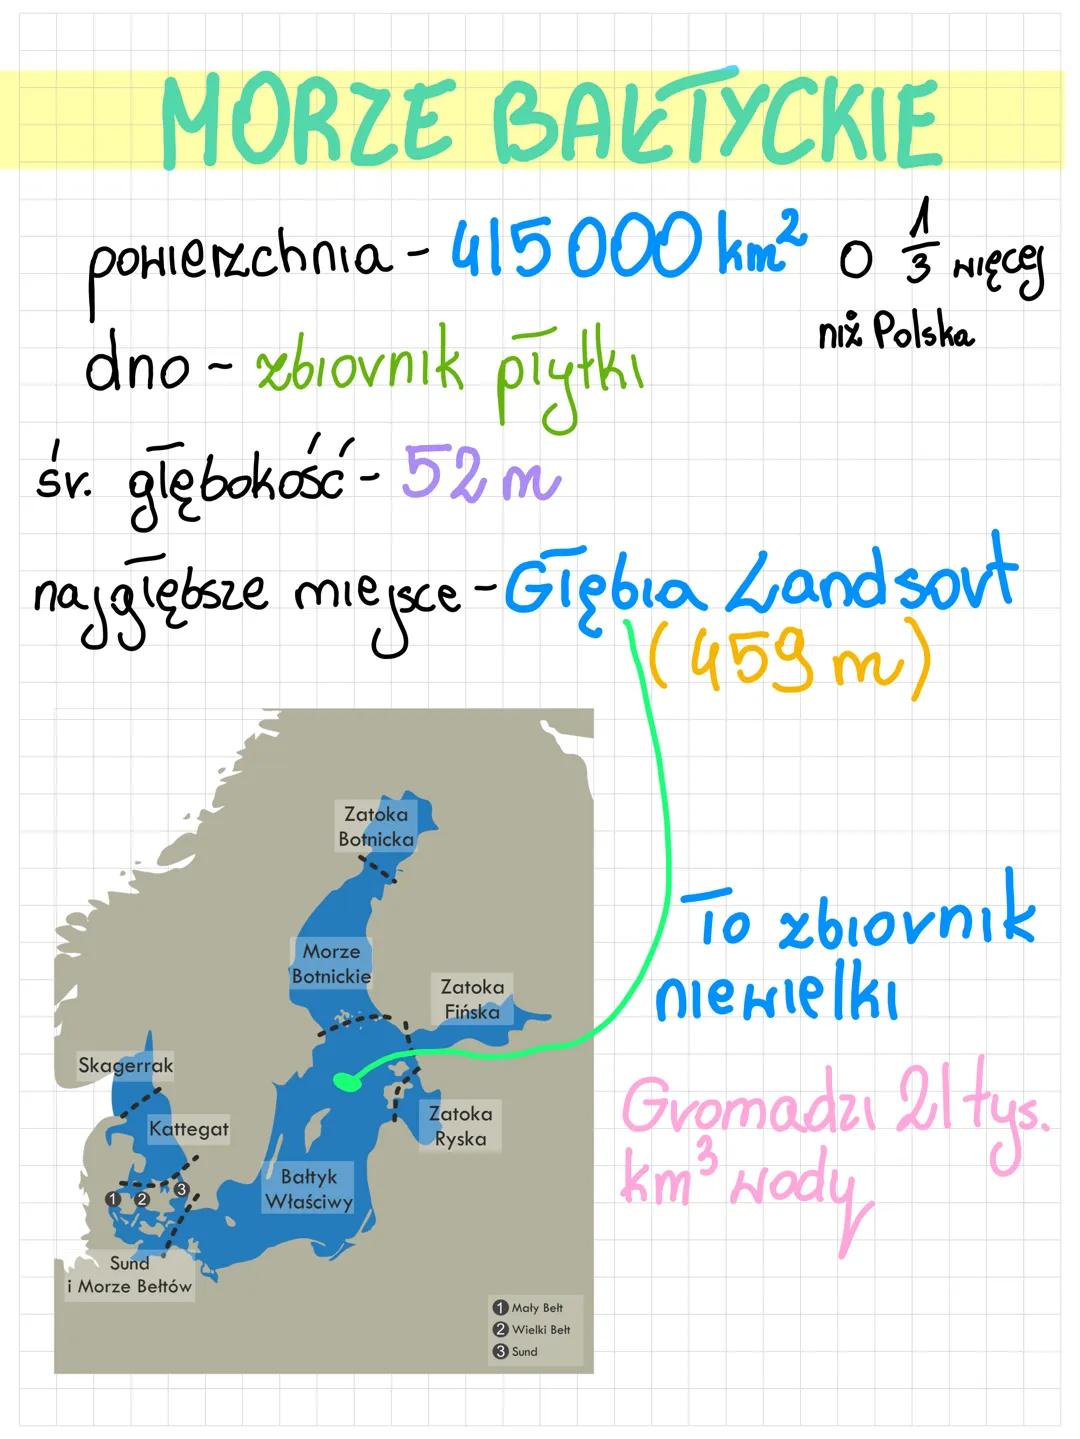 MORZE BAŁTYCKIE
powierzchnia - 415 000 km² o 1/3 więcej
niż Polska
dno - zbiornik płytki
śr. głębokość - 52 m
najgłębsze miejsce - Głębia Landsort
(459 m)
Zatoka
Botnicka
Morze
Botnickie
Zatoka
Fińska
Skagerrak
Kattegat
Zatoka
Ryska
Bałtyk
Właściwy
1 2 3
Sund
i Morze Bełtów
1 Mały Bełt
2 Wielki Bełt
3 Sund
To zbiornik
niewielki
Gromadzi 21 tys.
km³ wody